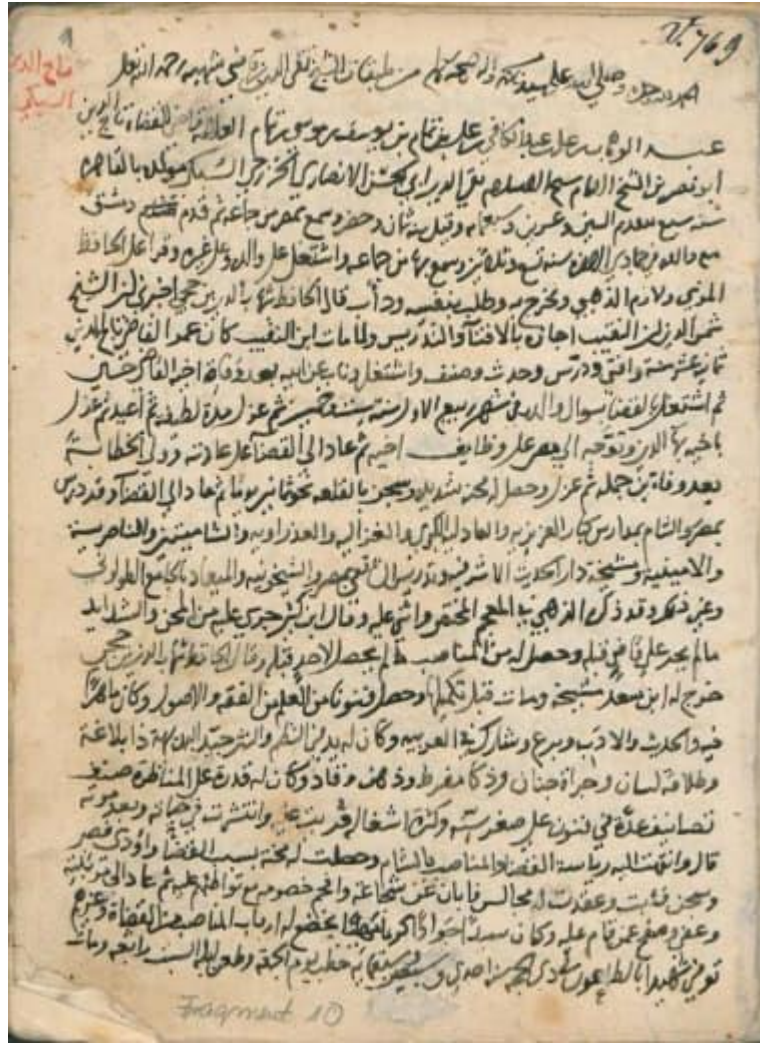 V. 769
9
تاج الدين
السبكي
الحمد لله وحده وصلى الله على سيدنا محمد واله وصحبه وسلم من طبقات الشيخ تقي الدين بن قاضي شهبة رحمه الله تعالى
عبد الوهاب بن علي بن عبد الكافي بن علي بن تمام بن يوسف بن موسى بن تمام العلامة قاضي القضاة تاج الدين
ابو نصر بن الشيخ الامام شيخ الاسلام تقي الدين ابي الحسن الانصاري الخزرجي السبكي مولده بالقاهرة
سنة سبع بتقديم السين وعشرين وسبعمائة وقيل سنة ثمان وحضر وسمع بمصر من جماعة ثم قدم دمشق
مع والده في جمادى الاخرة سنة تسع وثلاثين وسمع بها من جماعة واشتغل على والده وعلى غيره وقرأ على الحافظ
المزي ولازم الذهبي وتخرج به وطلب بنفسه ودأب قال الحافظ شهاب الدين بن حجي اخبرني ان الشيخ
شمس الدين ابن النقيب اجازه بالافتاء والتدريس ولما مات ابن النقيب كان عمر القاضي تاج الدين
ثمانية عشر سنة وافتى ودرس وحدث وصنف واشتغل وناب عن ابيه بعد وفاة اخيه القاضي حسين
ثم اشتغل بالقضا بسوال والده في شهر ربيع الاول سنة ست وخمسين ثم عزل مدة لطيفة ثم اعيد ثم عزل
باخيه بهاء الدين وتوجه الى مصر على وظايف اخيه ثم عاد الى القضا على عادته وولي الخطابة
بعد وفاة ابن جملة ثم عزل وحصل له محنة شديدة وسجن بالقلعة نحو ثمانين يوما ثم عاد الى القضا وقد درس
بمصر والشام بمدارس كبار العزيزية والعادلية الكبرى والغزالية والعذراوية والشاميتين والناصرية
والامينية ومشيخة دار الحديث الاشرفية وتدريس الشافعي بمصر والشيخونية والميعاد بالجامع الطولوني
وغير ذلك وقد ذكره الذهبي في المعجم المختص واثنى عليه وقال ابن كثير جرى عليه من المحن والشدايد
مالم يجر على قاض قبله وحصل له من المناصب ما لم يحصل لاحد قبله وقال الحافظ شهاب الدين بن حجي
خرج له ابن سعد مشيخة ومات قبل تكميلها وحصل فنونا من العلم من الفقه والاصول وكان ماهرا
فيه والحديث والادب وبرع وشارك في العربية وكان له يد في النظم والنثر جيد البديهة ذا بلاغة
وطلاقة لسان وجراة جنان وذكا مفرط وذهن وقاد وكان له قدرة على المناظرة صنف
تصانيف عدة في فنون على صغر سنه وكثرة اشغاله قرئت عليه وانتشرت في حياته وبعد موته
قال وانتهت اليه رياسة القضا والمناصب بالشام وحصلت له محنة بسبب القضا واوذي فصبر
وسجن فثبت وعقدت له مجالس فابان عن شجاعة وافحم خصومه مع تواطئهم عليه ثم عاد الى مرتبته
وعفى وصفح عمن قام عليه وكان سيدا جوادا كريما مهيبا يخضع له ارباب المناصب من القضاة وغيرهم
توفي شهيدا بالطاعون في ذي الحجة سنة احدى وسبعين وسبعمائة خطب يوم الجمعة وطعن ليلة السبت رابعه ومات
Fragment 10